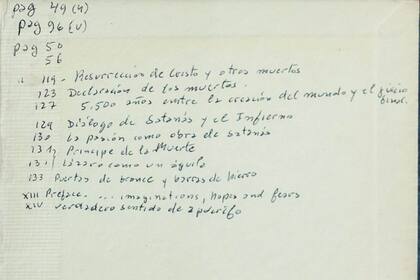 pag 49 (4)
pag 96 (v)
pag 50
56
" 119 - Resurrección de Cristo y otros muertos
123 Declaración de los muertos.
127 5.500 años entre la creación del mundo y el juicio
final.
129 Diálogo de Satanás y el Infierno
130 La pasión como obra de Satanás
131 Príncipe de la Muerte
131 Lázaro como un águila
133 Puertas de bronce y barras de hierro
XIII Preface ... imaginations, hopes and fears
XIV verdadero sentido de apócrifo